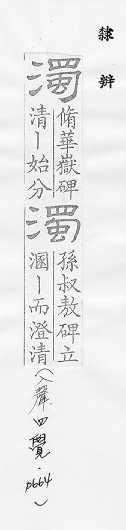 隸辨
濁
脩華嶽碑
清丨始分
濁
孫叔敖碑立
溷丨而澄清
(入聲四覺．p664)